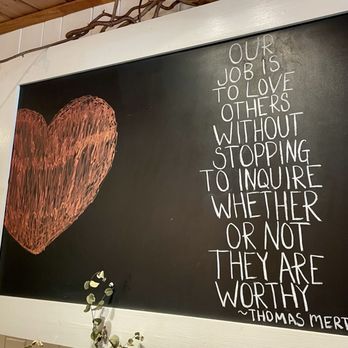 OUR
JOB IS
TO LOVE
OTHERS
WITHOUT
STOPPING
TO INQUIRE
WHETHER
OR NOT
THEY ARE
WORTHY
~THOMAS